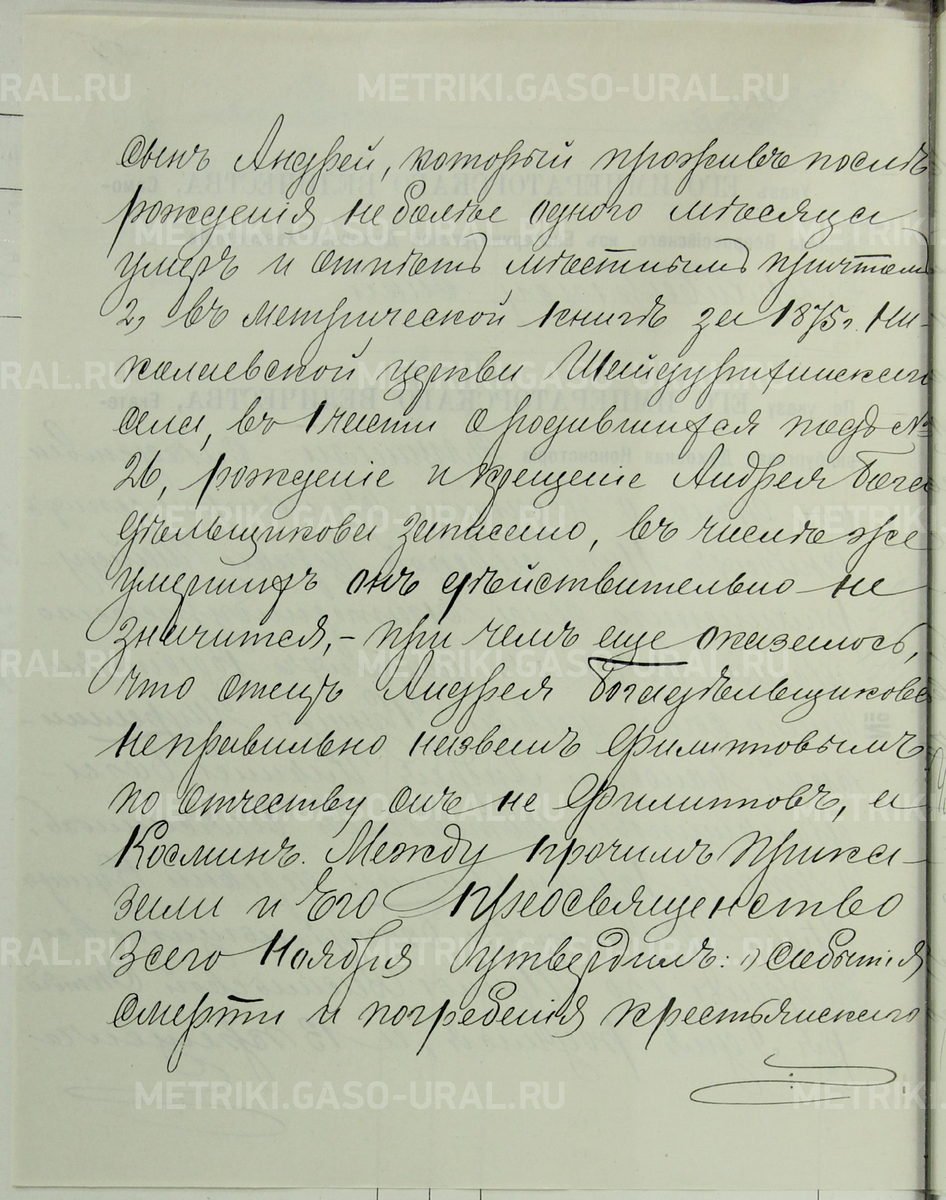 сынъ Андрей, который проживъ послѣ
рожденія не болѣе одного мѣсяца
умеръ и отпѣтъ мѣстнымъ причтомъ
2, въ метрической книгѣ за 1875 г. Ни-
колаевской церкви Шейдурихинскаго
села, въ 1 части о родившихся подъ №
26, рожденіе и крещеніе Андрея Бога
дѣльщикова записано, въ числѣ же
умершихъ онъ дѣйствительно не
значится, – при чемъ еще оказалось,
что отецъ Андрея Богадѣльщикова
неправильно названъ Филипповымъ
по отчеству онъ не Филипповъ, а
Косминъ. Между прочимъ прика-
зали и Его Преосвященство
3 сего Ноября утвердилъ: 1) событія
смерти и погребенія крестьянскаго
METRIKI.GASO-URAL.RU